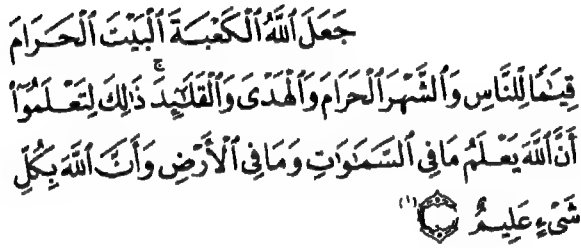 جَعَلَ ٱللَّهُ ٱلْكَعْبَةَ ٱلْبَيْتَ ٱلْحَرَامَ
قِيَٰمًا لِّلنَّاسِ وَٱلشَّهْرَ ٱلْحَرَامَ وَٱلْهَدْىَ وَٱلْقَلَٰٓئِدَ ۚ ذَٰلِكَ لِتَعْلَمُوٓا۟
أَنَّ ٱللَّهَ يَعْلَمُ مَا فِى ٱلسَّمَٰوَٰتِ وَمَا فِى ٱلْأَرْضِ وَأَنَّ ٱللَّهَ بِكُلِّ
شَىْءٍ عَلِيمٌ ۝ (١)